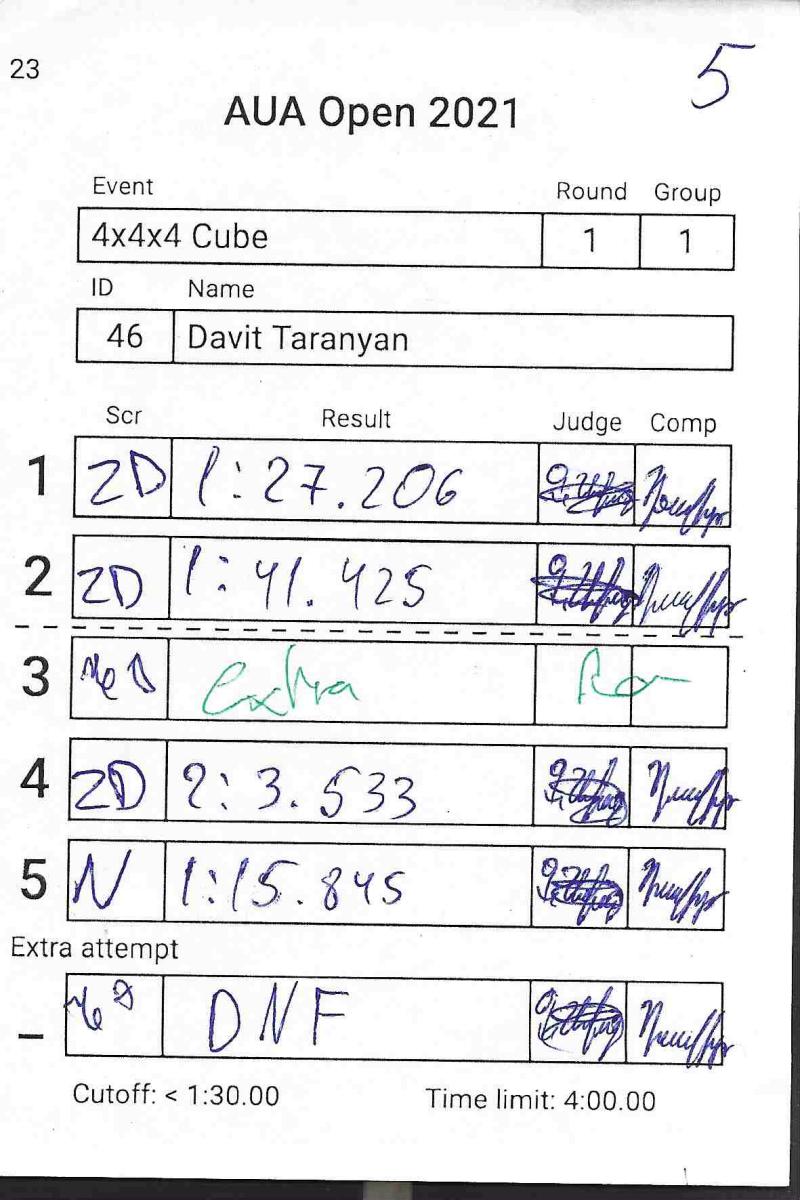 23
5
AUA Open 2021
Event Round Group
4x4x4 Cube 1 1
ID Name
46 Davit Taranyan
Scr Result Judge Comp
1 ZD 1:27.206
2 ZD 1:41.425
3 Extra
4 ZD 2:3.533
5 N 1:15.845
Extra attempt
_ DNF
Cutoff: < 1:30.00 Time limit: 4:00.00